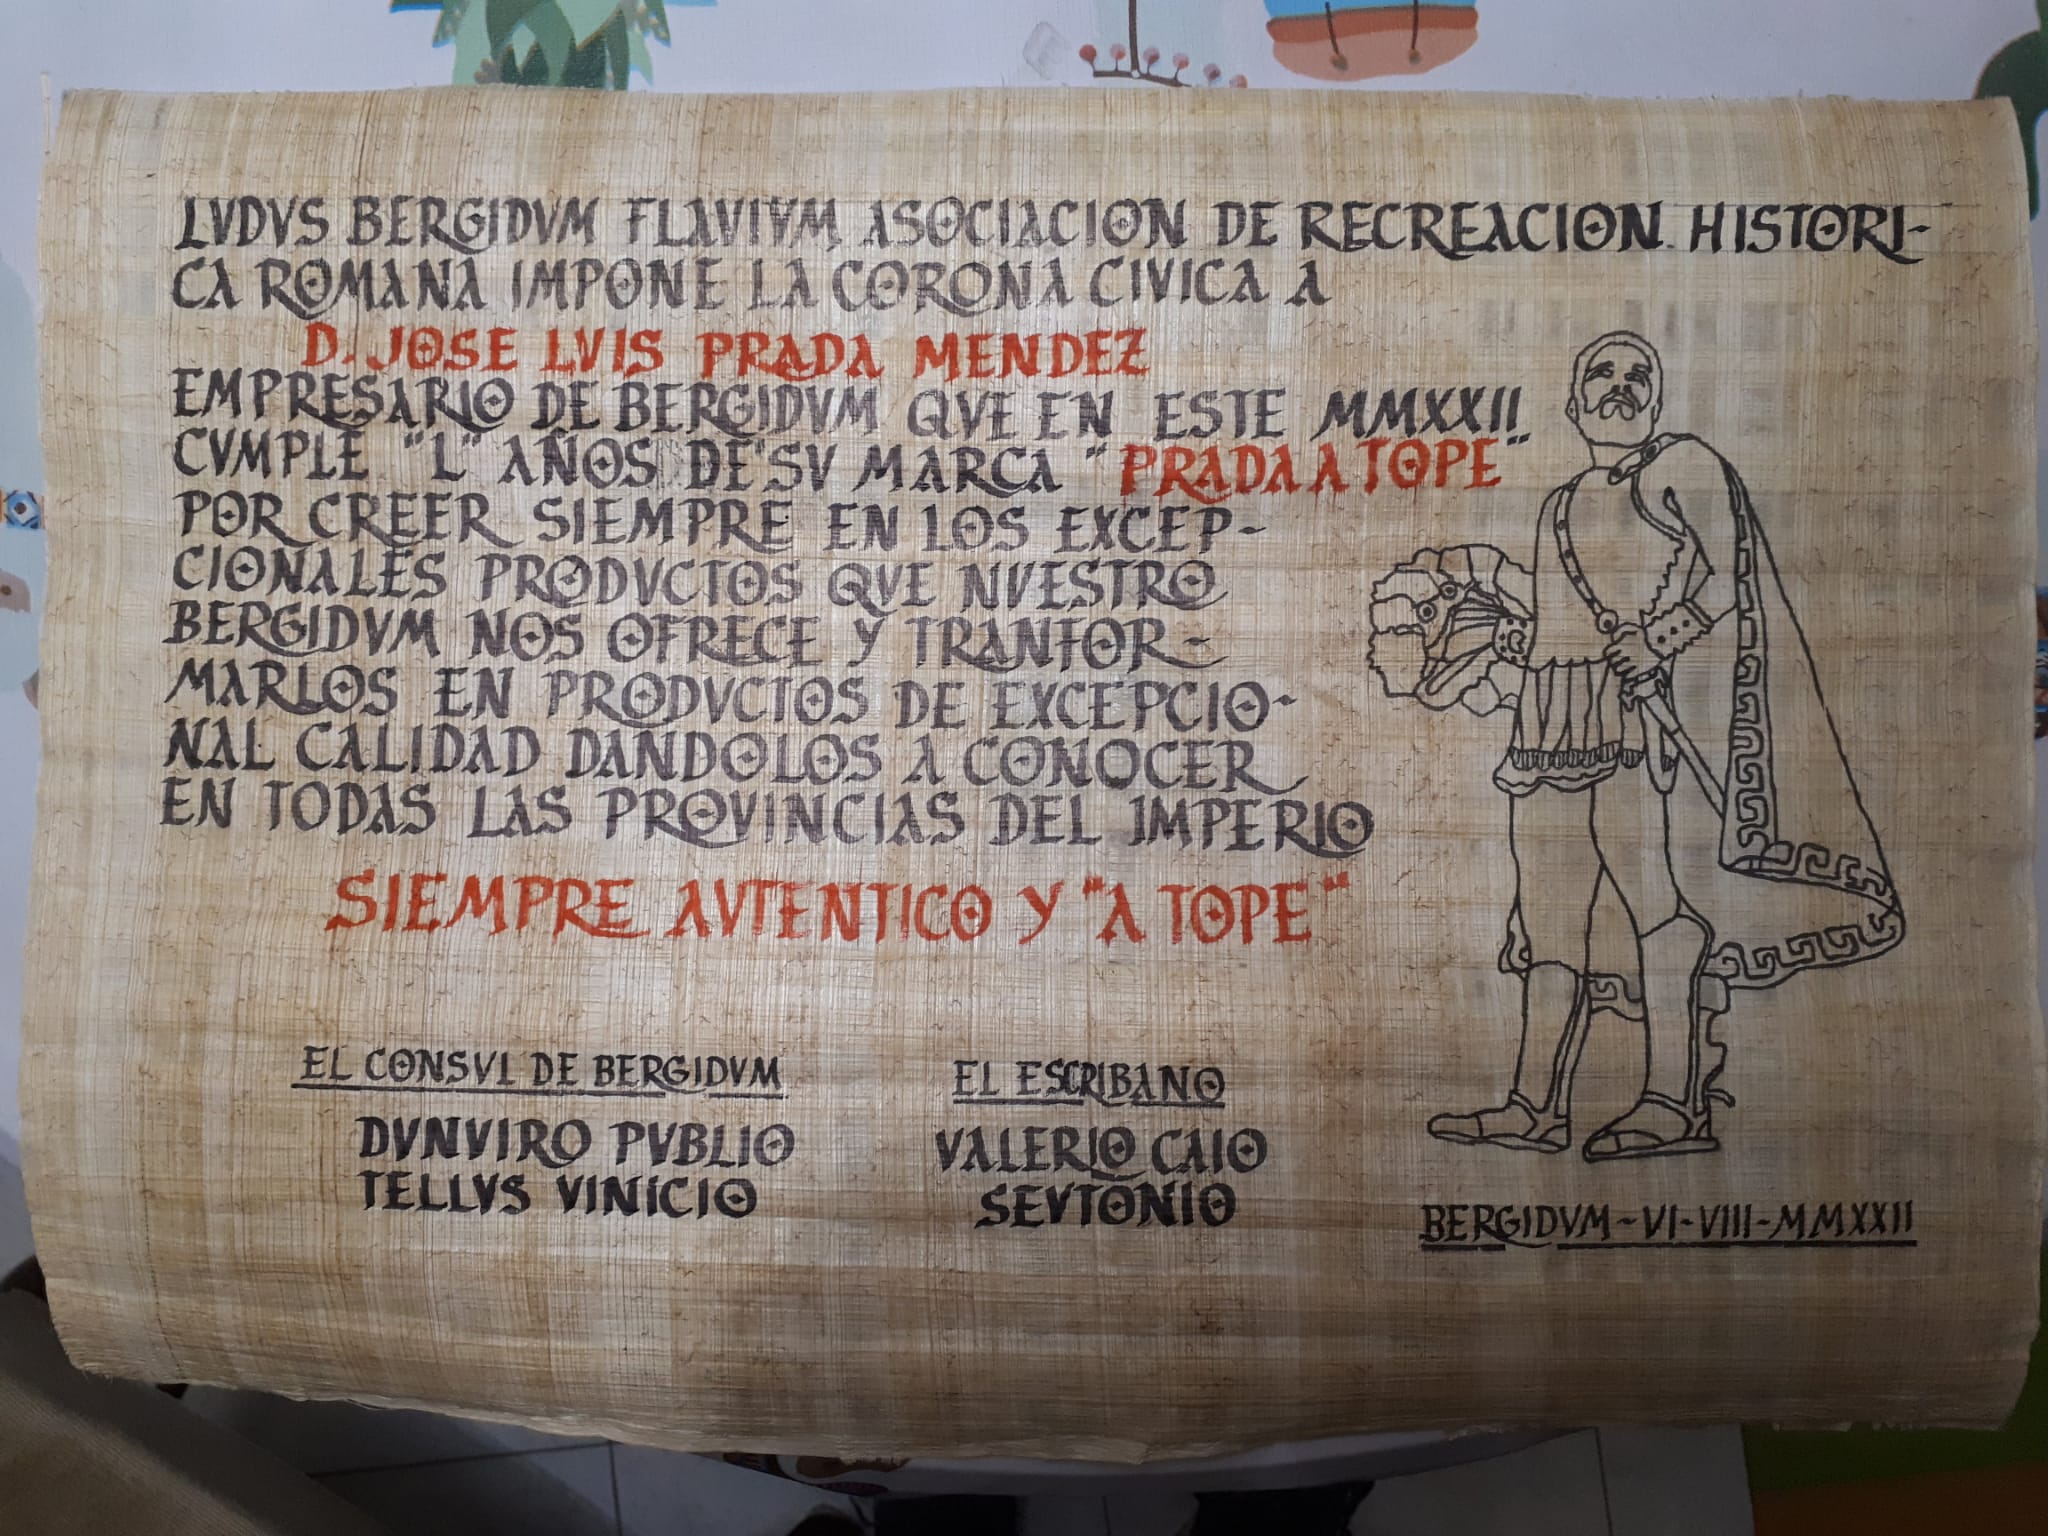 LVDVS BERGIDVM FLAVIVM, ASOCIACION DE RECREACION HISTORI-
CA ROMANA IMPONE LA CORONA CIVICA A
D. JOSE LVIS PRADA MENDEZ
EMPRESARIO DE BERGIDVM QVE EN ESTE MMXXII
CVMPLE "L" AÑOS DE SV MARCA "PRADA A TOPE"
POR CREER SIEMPRE EN LOS EXCEP-
CIONALES PRODVCTOS QVE NVESTRO
BERGIDVM NOS OFRECE Y TRANFOR-
MARLOS EN PRODVCTOS DE EXCEPCIO-
NAL CALIDAD DANDOLOS A CONOCER
EN TODAS LAS PROVINCIAS DEL IMPERIO
SIEMPRE AVTENTICO Y "A TOPE"
EL CONSVL DE BERGIDVM
DVNVIRO PVBLIO
TELLVS VINICIO
EL ESCRIBANO
VALERIO CAIO
SEVTONIO
BERGIDVM-VI-VIII-MMXXII